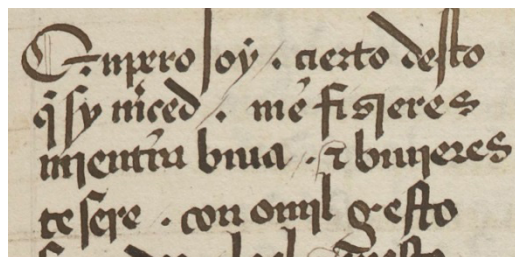 Empero soy . cierto desto
q̃ sy mc̃ed . me fizieres
mientra biua . & biuieres
te sere . con omil gesto